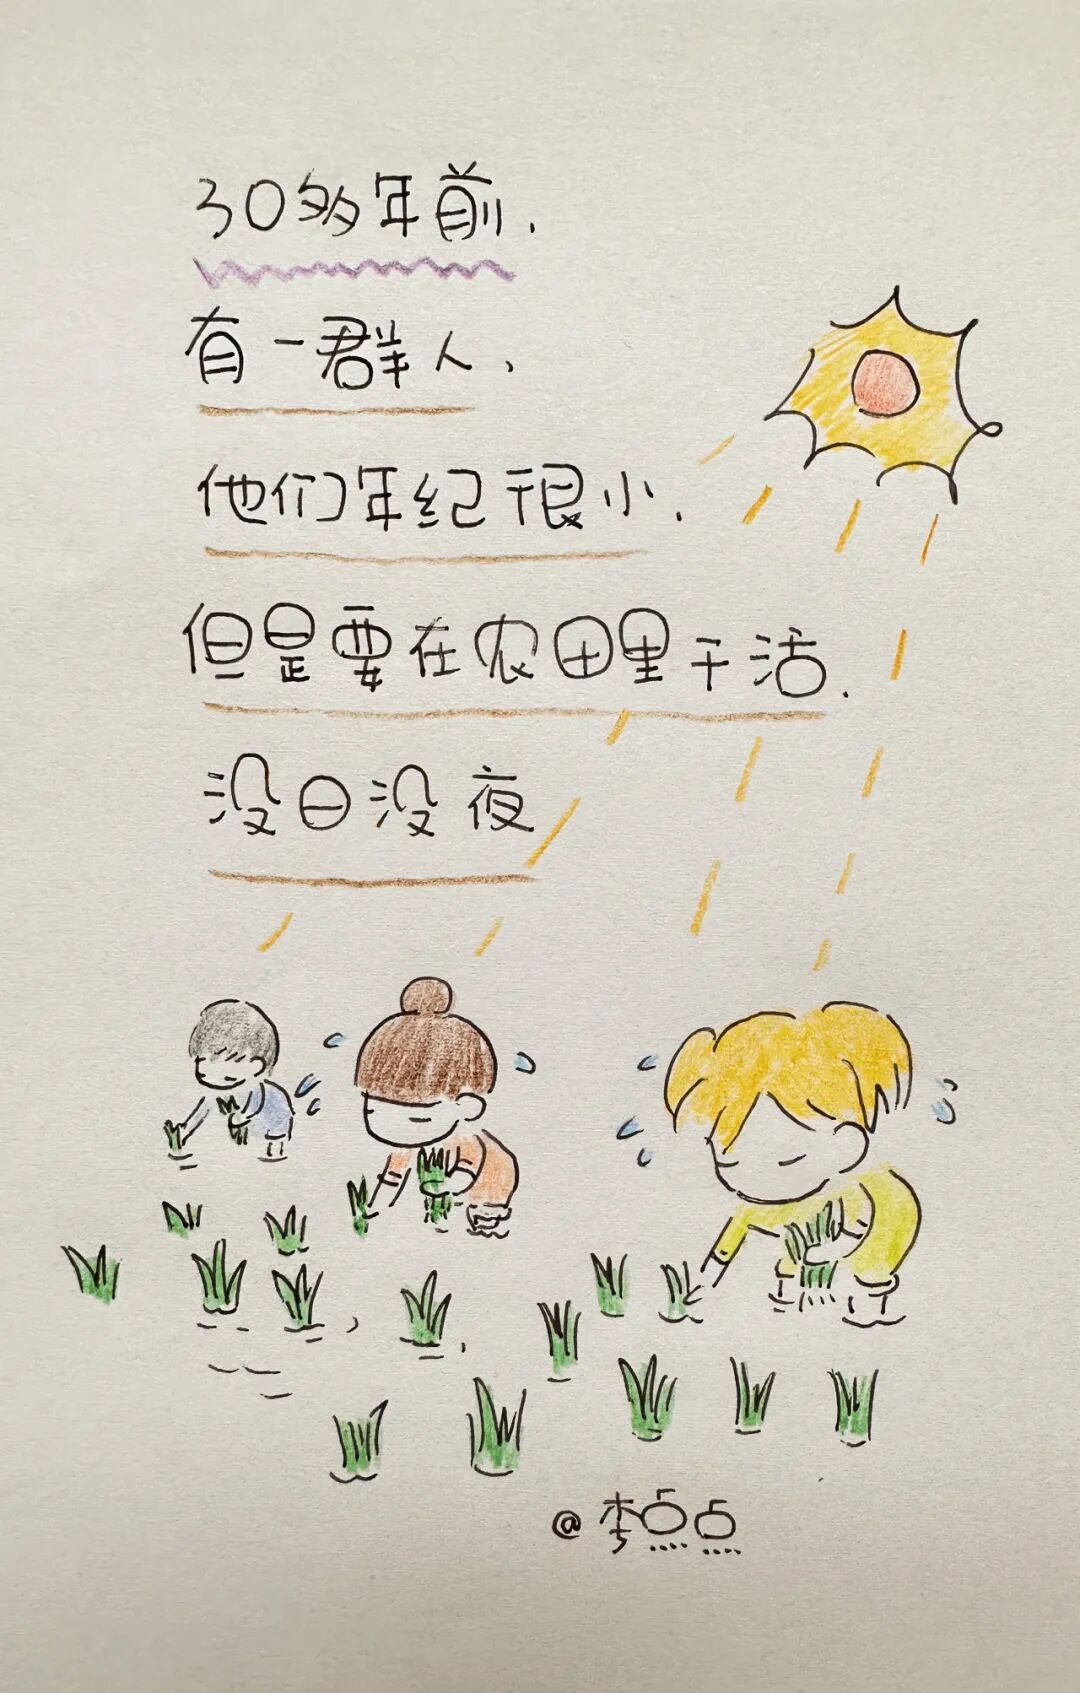 30多年前,
有一群人,
他们年纪很小,
但是要在农田里干活,
没日没夜
@李点点